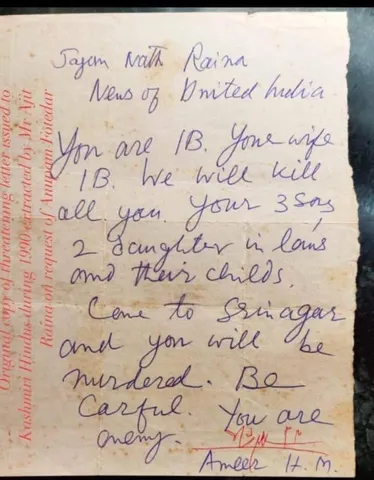 Sajan Nath Raina
News of United India
You are IB. Your wife
IB. We will kill
all you. Your 3 Sons,
2 daughter in laws
and their childs.
Come to Srinagar
and you will be
murdered. Be
Carful. You are
enemy.
Ameer H.M.
Original copy of threatening letter issued to
Kashmiri Hindus during 1990 extracted by Mr Ajit
Raina on request of Annpam Fotedar